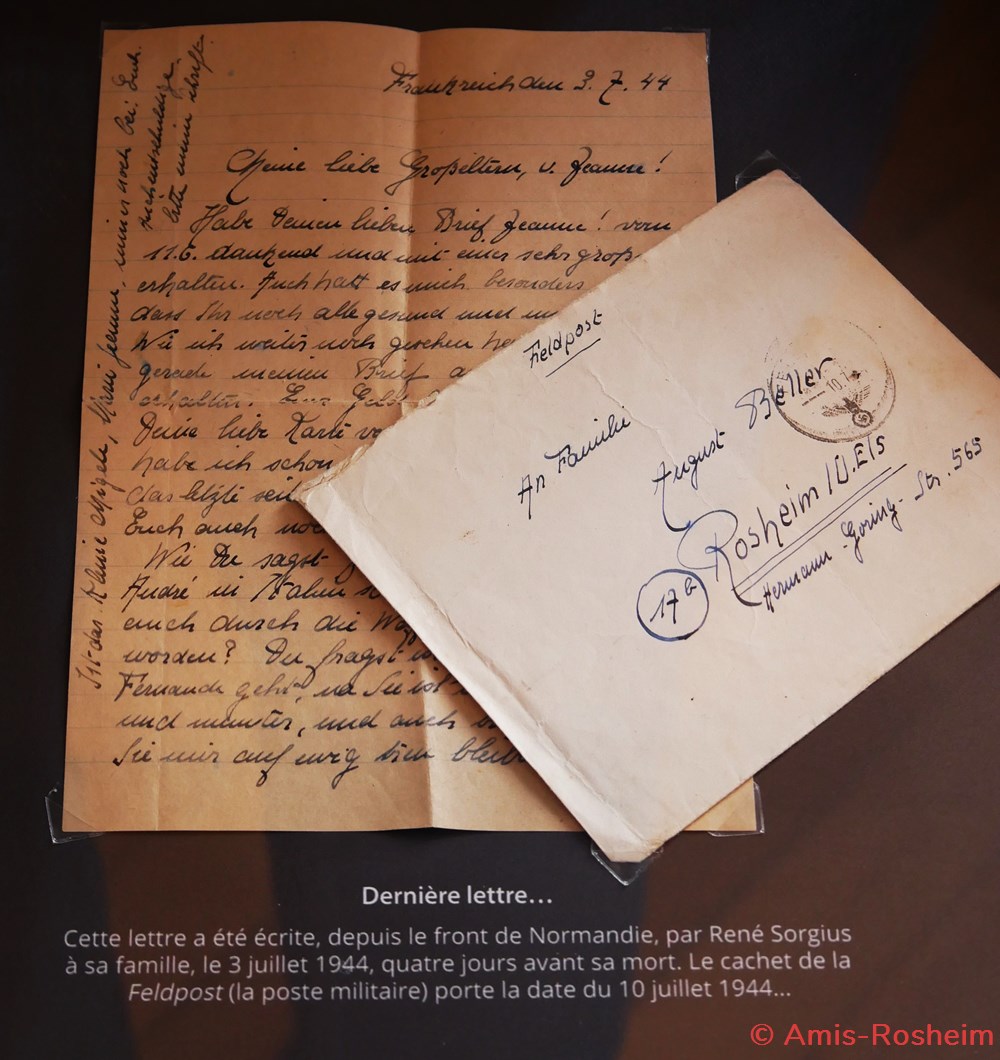 Frankreich den 3. 7. 44
Meine liebe Großeltern, u. Jeanne!
Habe Deinen lieben Brief Jeanne! vom
11.6. dankend und mit einer sehr groß
erhalten. Auch hatt es mich besonders
dass Ihr noch alle gesund und
Wie ich weiter noch gesehen
gerade meinen Brief
erhalten.
Deine liebe Karte
habe ich schon
das letzte
Euch auch
Wie Du sagst
André in Italien
euch durch die
worden? Du fragst
Fernande geht, na Sie ist
und munter, und auch
Sie mir auf ewig treu
Ist das kleine Migele, Mimi Jeanne, immer noch bei Euch.
bitte meine schrift.
Feldpost
An Familie
August Beller
Rosheim / U. Els
Hermann-Göring-Str. 565
17b
10.7
Dernière lettre…
Cette lettre a été écrite, depuis le front de Normandie, par René Sorgius
à sa famille, le 3 juillet 1944, quatre jours avant sa mort. Le cachet de la
Feldpost (la poste militaire) porte la date du 10 juillet 1944…
© Amis-Rosheim